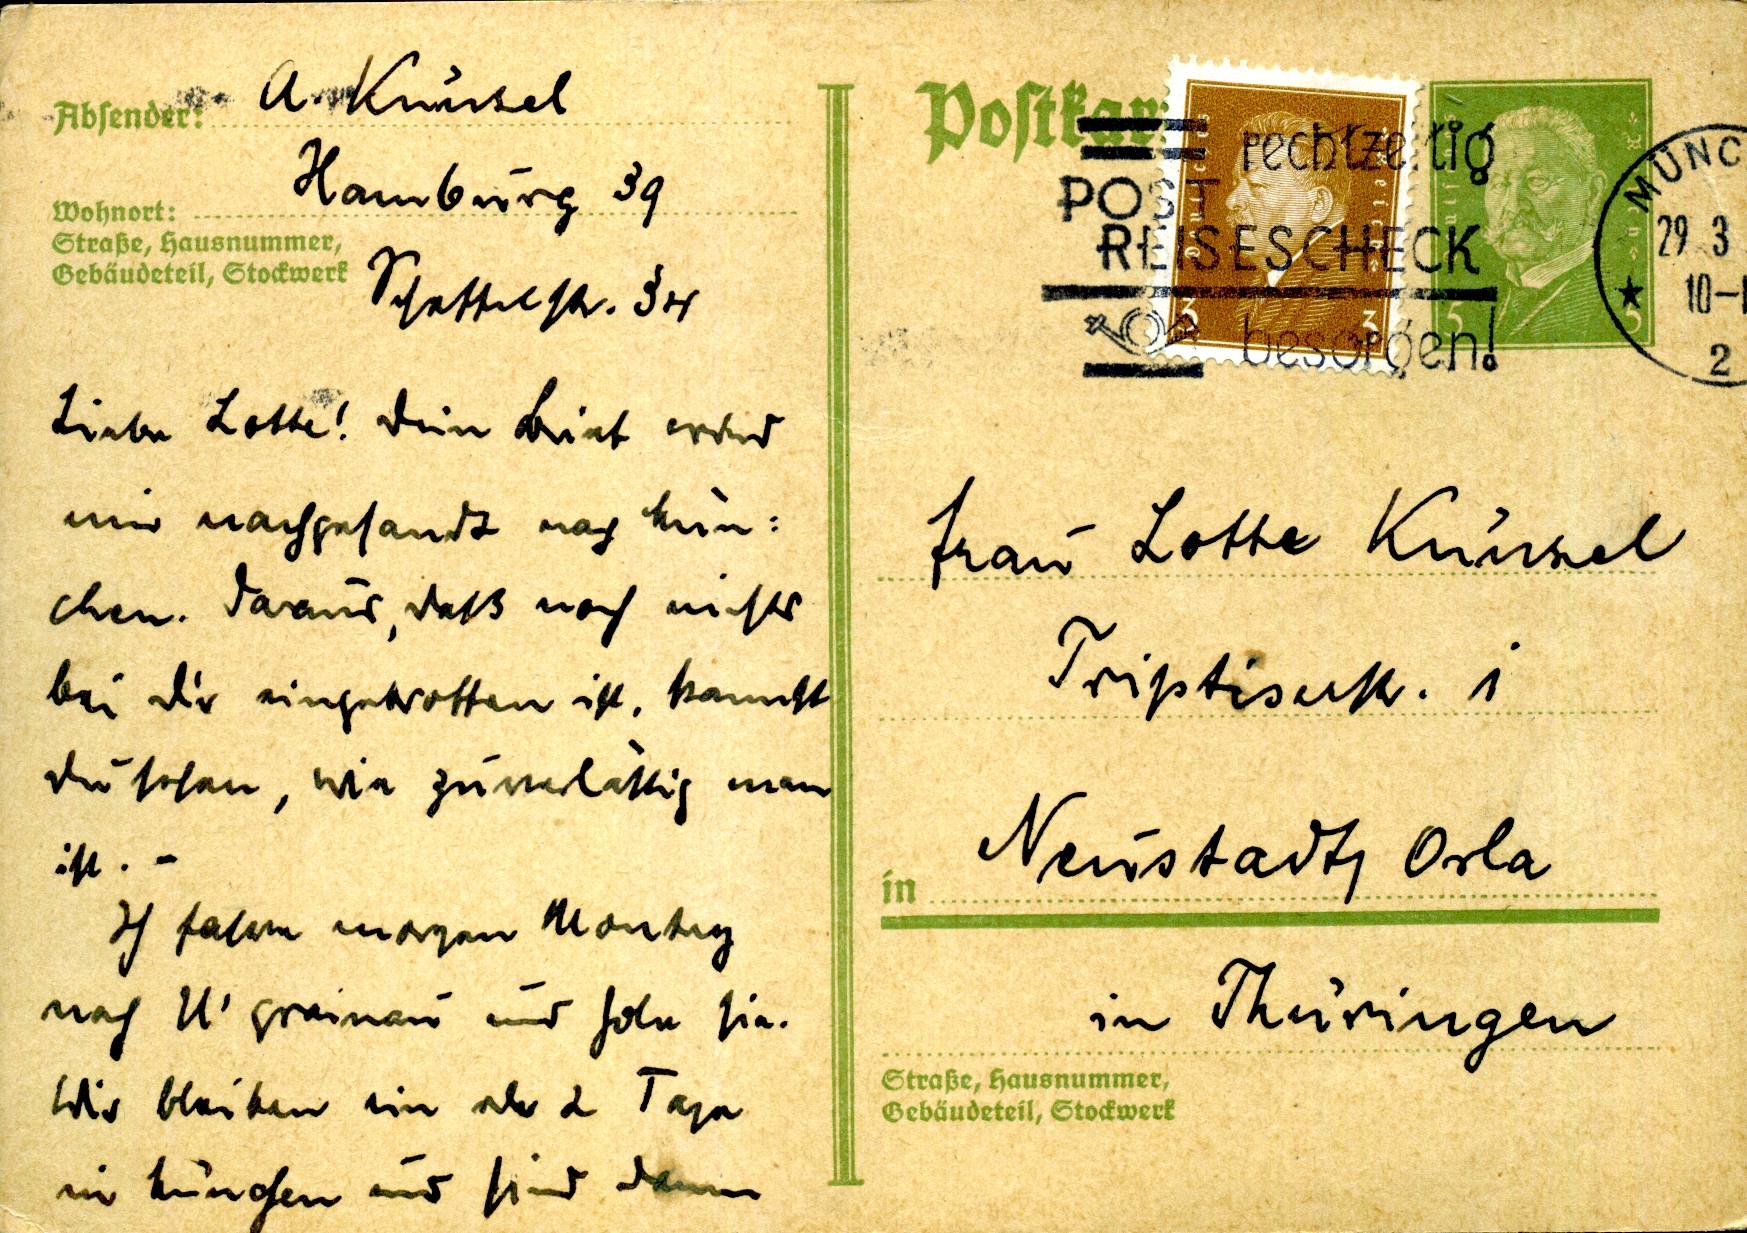 Absender: A. Knüsel
Hamburg 39
Wohnort:
Straße, Hausnummer,
Gebäudeteil, Stockwerk
34
Liebe Lotte! Dein Brief wird
mir nachgesandt nach Mün:
chen. Daraus, daß noch nichts
bei dir eingetroffen ist, kannst
du sehen, wie zuverlässig man
ist. -
Ich fahre morgen Montag
nach U'grainau und hole sie.
Wir bleiben ein oder 2 Tage
in München und sind dann
Postkar
rechtzeitig
POST
REISESCHECK
besorgen!
Deutsches Reich
3 3
5 5
MÜNC
29 3
10-1
2
Frau Lotte Knüsel
Triptiserstr. 1
in Neustadt, Orla
in Thüringen
Straße, Hausnummer,
Gebäudeteil, Stockwerk